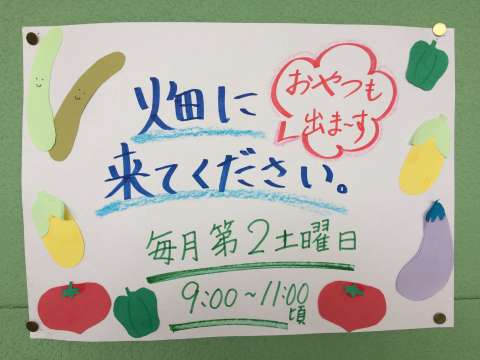 畑に
来てください。
おやつも
出ま〜す
毎月第2土曜日
9:00〜11:00
頃